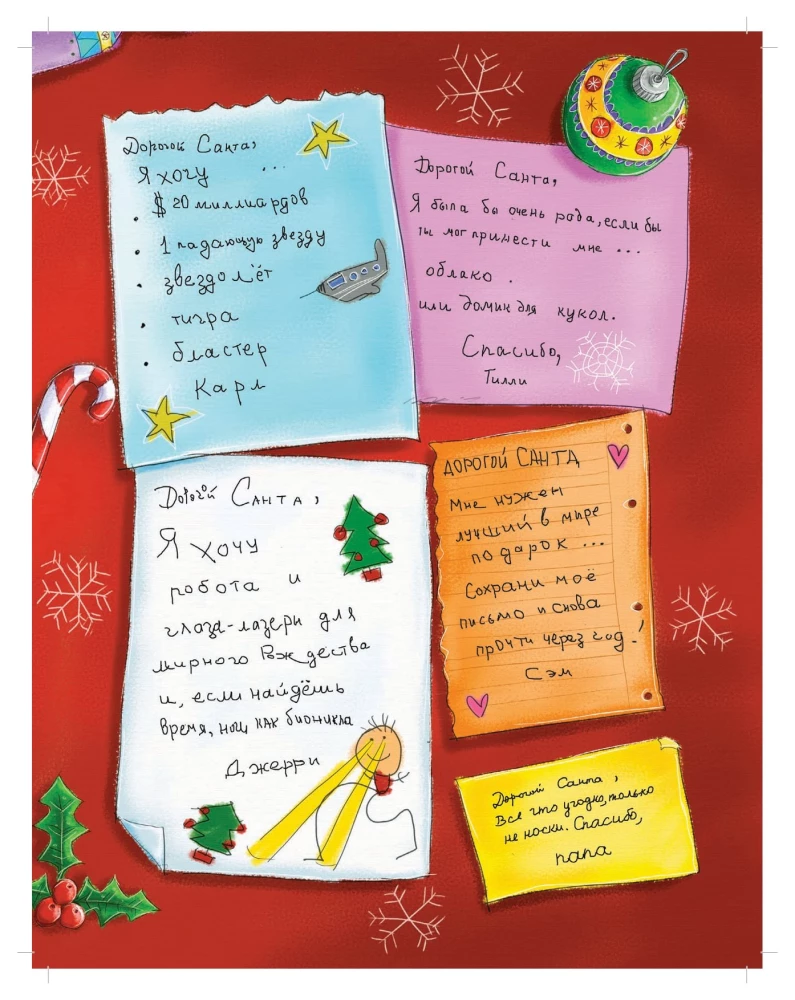 Дорогой Санта,
Я хочу ...
• $ 20 миллиардов
• 1 падающую звезду
• звездолёт
• тигра
• бластер
Карл
Дорогой Санта,
Я была бы очень рада, если бы
ты мог принести мне ...
облако.
или домик для кукол.
Спасибо,
Тилли
Дорогой Санта,
Я хочу
робота и
глаза-лазеры для
мирного Рождества
и, если найдёшь
время, как бионикла
Джерри
ДОРОГОЙ САНТА
Мне нужен
лучший в мире
подарок ...
Сохрани моё
письмо и снова
прочти через год!
Сэм
Дорогой Санта,
Все что угодно, только
не носки. Спасибо,
папа